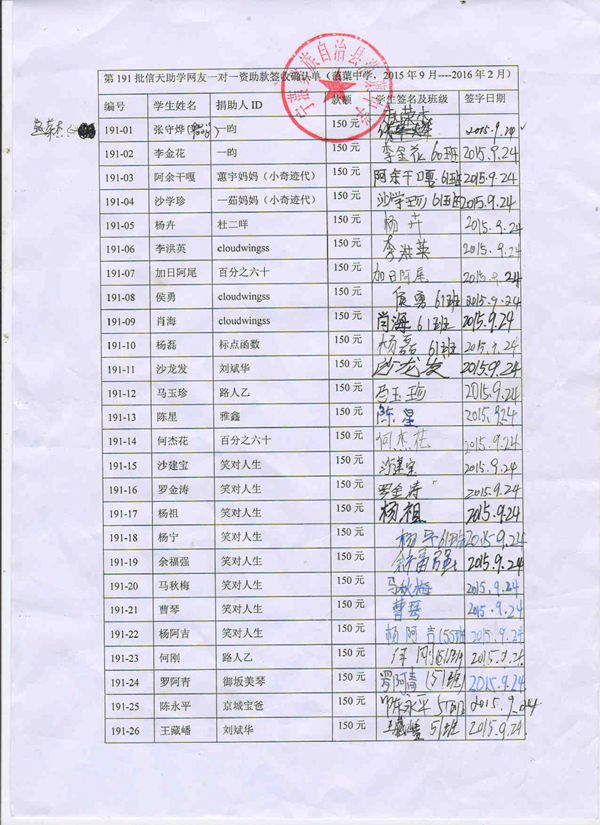 第191批信天助学网友一对一资助款签收确认单（蒗蕖中学，2015年9月----2016年2月）
编号 学生姓名 捐助人ID 款额 学生签名及班级 签字日期
191-01 张守烨 一昀 150元 2015.9.24
191-02 李金花 一昀 150元 李金花 60班 2015.9.24
191-03 阿余干嘎 蕙宇妈妈（小奇迹代） 150元 阿余干嘎 61班 2015.9.24
191-04 沙学珍 一茹妈妈（小奇迹代） 150元 沙学珍 61班 2015.9.24
191-05 杨卉 杜二咩 150元 杨卉 2015.9.24
191-06 李洪英 cloudwingss 150元 李洪英 2015.9.24
191-07 加日阿尾 百分之六十 150元 加日阿尾 2015.9.24
191-08 侯勇 cloudwingss 150元 侯勇 61班 2015.9.24
191-09 肖海 cloudwingss 150元 肖海 61班 2015.9.24
191-10 杨磊 标点函数 150元 杨磊 61班 2015.9.24
191-11 沙龙发 刘斌华 150元 沙龙发 2015.9.24
191-12 马玉珍 路人乙 150元 马玉珍 2015.9.24
191-13 陈星 雅鑫 150元 陈星 2015.9.24
191-14 何杰花 百分之六十 150元 何杰花 2015.9.24
191-15 沙建宝 笑对人生 150元 沙建宝 2015.9.24
191-16 罗金涛 笑对人生 150元 罗金涛 2015.9.24
191-17 杨祖 笑对人生 150元 杨祖 2015.9.24
191-18 杨宁 笑对人生 150元 杨宁 61班 2015.9.24
191-19 余福强 笑对人生 150元 2015.9.24
191-20 马秋梅 笑对人生 150元 马秋梅 2015.9.24
191-21 曹琴 笑对人生 150元 曹琴 2015.9.24
191-22 杨阿吉 笑对人生 150元 杨阿吉 (55班 2015.9.24
191-23 何刚 路人乙 150元 何刚 2015.9.24
191-24 罗阿青 御坂美琴 150元 罗阿青 (51班) 2015.9.24
191-25 陈永平 京城宝爸 150元 陈永平 51班 2015.9.24
191-26 王藏嶓 刘斌华 150元 51班 2015.9.24